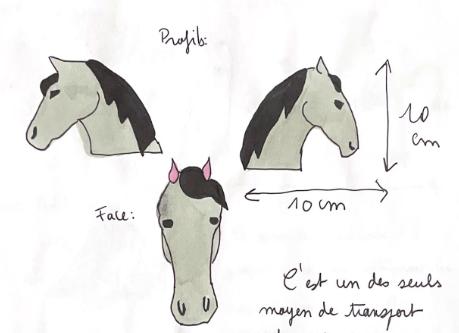 Profils:
10
cm
10 cm
Face:
C'est un des seuls
moyen de transport